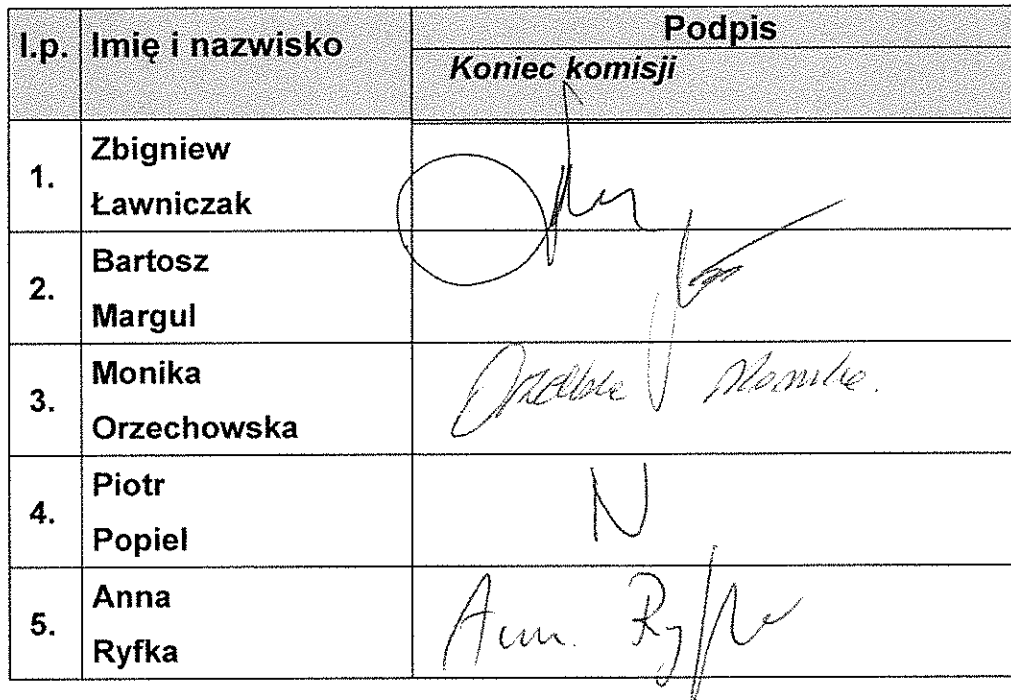 l.p. Imię i nazwisko Podpis
Koniec komisji
1. Zbigniew
Ławniczak
2. Bartosz
Margul
3. Monika
Orzechowska
4. Piotr
Popiel
N
5. Anna
Ryfka